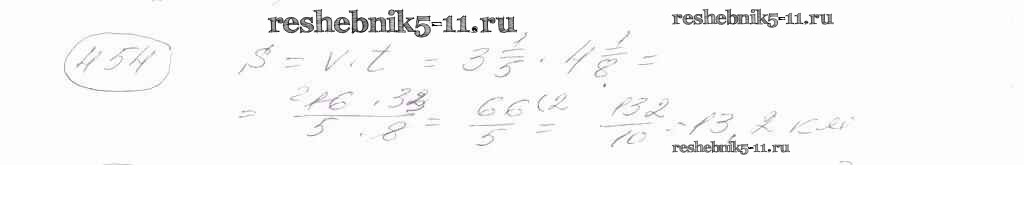 reshebnik5-11.ru
reshebnik5-11.ru
454 S = v · t = 3 1/5 · 4 1/8 =
= 16 · 33 / 5 · 8 = 66 (2 / 5 = 132 / 10 = 13,2 км
reshebnik5-11.ru